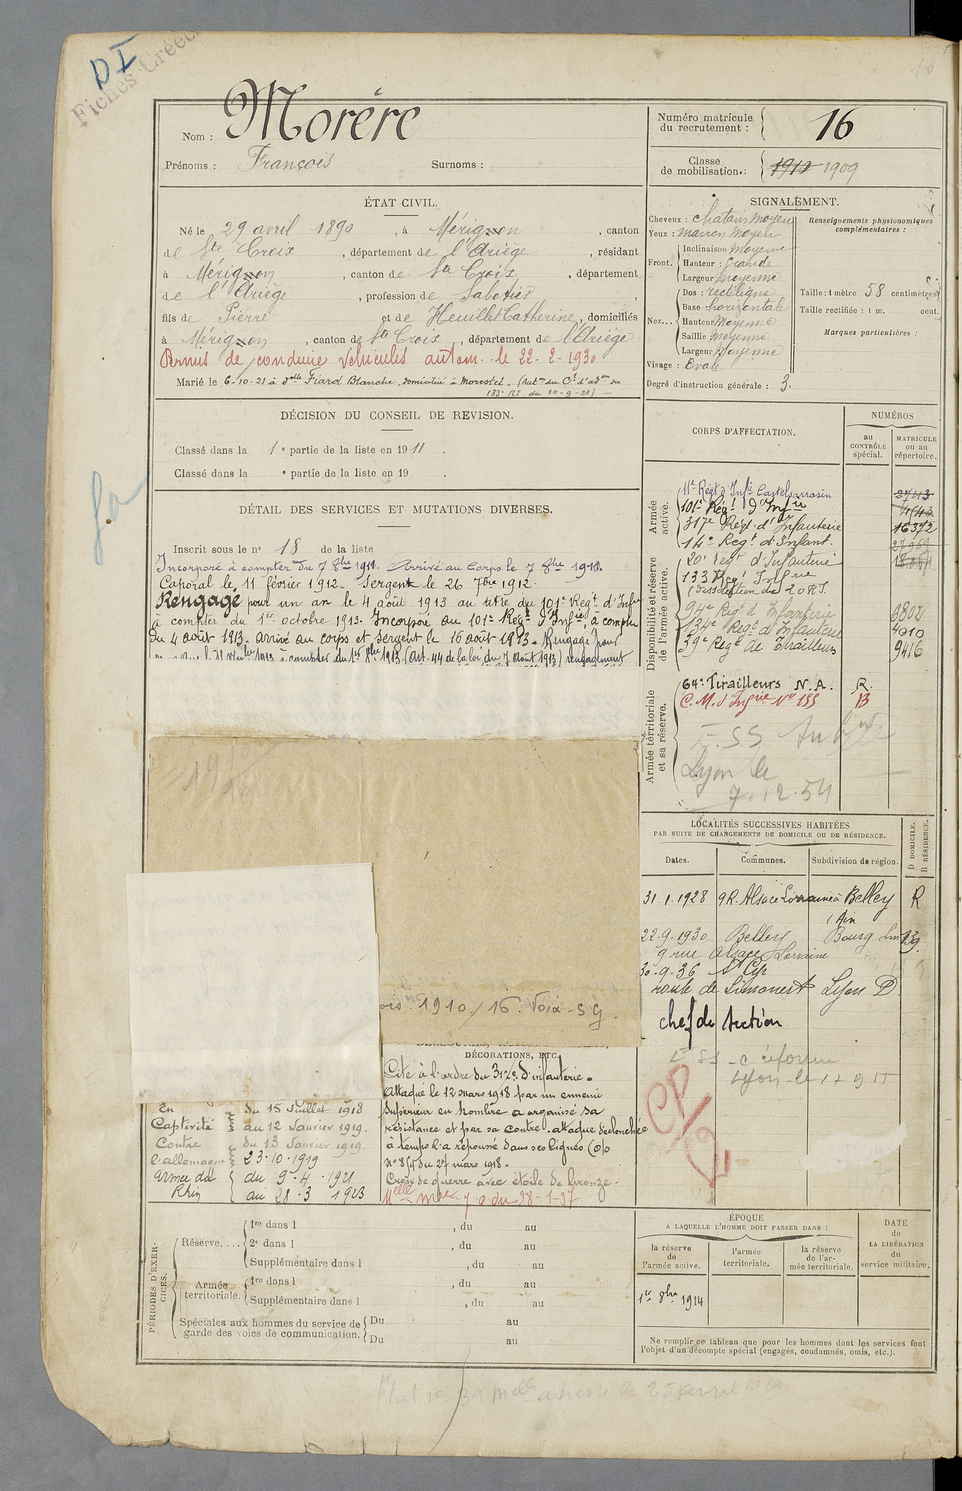 D I
Fiches Créées
Nom : Morère
Prénoms : François Surnoms :
Numéro matricule du recrutement : 16
Classe de mobilisation : 1910 1909
ÉTAT CIVIL.
Né le 29 avril 1890, à Mérignon, canton
de Ste Croix, département de l'Ariège, résidant
à Mérignon, canton de Ste Croix, département
de l'Ariège, profession de Sabotier,
fils de Pierre et de Heuillet Catherine, domiciliés
à Mérignon, canton de Ste Croix, département de l'Ariège
Permis de conduire véhicules autom. le 22-2-1930
Marié le 6-10-21 à Delle Fiard Blanche, domiciliée à Morestel - (Auton du Cl d'adon du
133e RI du 20-9-21) -
SIGNALEMENT.
Cheveux : chatain moyen
Yeux : marron moyen
Front. Inclinaison moyenne
Hauteur : grande
Largeur moyenne
Nez... Dos : rectiligne
Base : horizontale
Hauteur Moyenne
Saillie Moyenne
Largeur Moyenne
Visage : Ovale
Renseignements physionomiques complémentaires :
Taille : 1 mètre 58 centimètres
Taille rectifiée : 1 m. cent.
Marques particulières :
Degré d'instruction générale : 3.
DÉCISION DU CONSEIL DE REVISION.
Classé dans la 1e partie de la liste en 1911.
Classé dans la e partie de la liste en 19 .
DÉTAIL DES SERVICES ET MUTATIONS DIVERSES.
Inscrit sous le no 18 de la liste
Incorporé à compter du 7 8bre 1911. Arrivé au Corps le 7 8bre 1911.
Caporal le 11 février 1912. Sergent le 26 7bre 1912.
Rengagé pour un an le 4 août 1913 au titre du 101e Regt d'Infie
à compter du 1er octobre 1913. Incorporé au 101e Regt d'Infie, à compter
du 4 août 1913. arrivé au corps et Sergent le 16 août 1913. Rengagé pour
1913 à compter du 1er 8bre 1913 (Art. 44 de la loi du 7 août 1913) rengagement
CORPS D'AFFECTATION.
NUMÉROS
au CONTRÔLE spécial.
MATRICULE ou au répertoire.
Armée active.
11e Regt d'Infie Castelsarrasin 2743
101e Regt d'Infie
317e Regt d'Infanterie 16372
14e Regt d'Infant.
Disponibilité et réserve de l'armée active.
20e Regt d'Infanterie
133e Regt Infie
(Dissolution du 20 RI.
94e Regt d'Infanterie 0802
134e Regt d'Infanterie 4010
39e Regt de Tirailleurs 9416
Armée territoriale et sa réserve.
64e Tirailleurs N.A. R.
C.M. d'Infrie No 155 B
Lyon le
7.12.54
19
16
LOCALITÉS SUCCESSIVES HABITÉES
PAR SUITE DE CHANGEMENTS DE DOMICILE OU DE RÉSIDENCE.
Dates. Communes. Subdivision de région. D DOMICILE. R RÉSIDENCE.
31.1.1928 9 R. Alsace Lorraine à Belley R
(Ain
22-9-1930 Belley Bourg
9 rue Alsace Lorraine
30-9-36 St Cyr
route de Limonest Lyon D
chef de Section
1910/16. Voix-SG.
DÉCORATIONS, ETC.
Cité à l'ordre du 317e d'infanterie.
Attaqué le 12 mars 1918 par un ennemi
Supérieur en nombre a organisé sa
résistance et par sa contre-attaque déclenchée
à temps l'a repoussé dans ses lignes
No 84 du 27 mars 1918.
Croix de guerre avec étoile de bronze.
En Captivité du 15 Juillet 1918
au 12 Janvier 1919.
Contre l'allemagne du 13 Janvier 1919
23-10-1919
Armée du Rhin du 9-4-1921
au 28-3 1923
PÉRIODES D'EXERCICES.
Réserve....
1re dans l , du au
2e dans l , du au
Supplémentaire dans l , du au
Armée territoriale.
1re dans l , du au
Supplémentaire dans l , du au
Spéciales aux hommes du service de garde des voies de communication.
Du au
Du au
ÉPOQUE
A LAQUELLE L'HOMME DOIT PASSER DANS :
la réserve de l'armée active.
l'armée territoriale.
la réserve de l'armée territoriale.
DATE de LA LIBÉRATION du service militaire.
1er 8bre 1914
Ne remplir ce tableau que pour les hommes dont les services font
l'objet d'un décompte spécial (engagés, condamnés, omis, etc.).